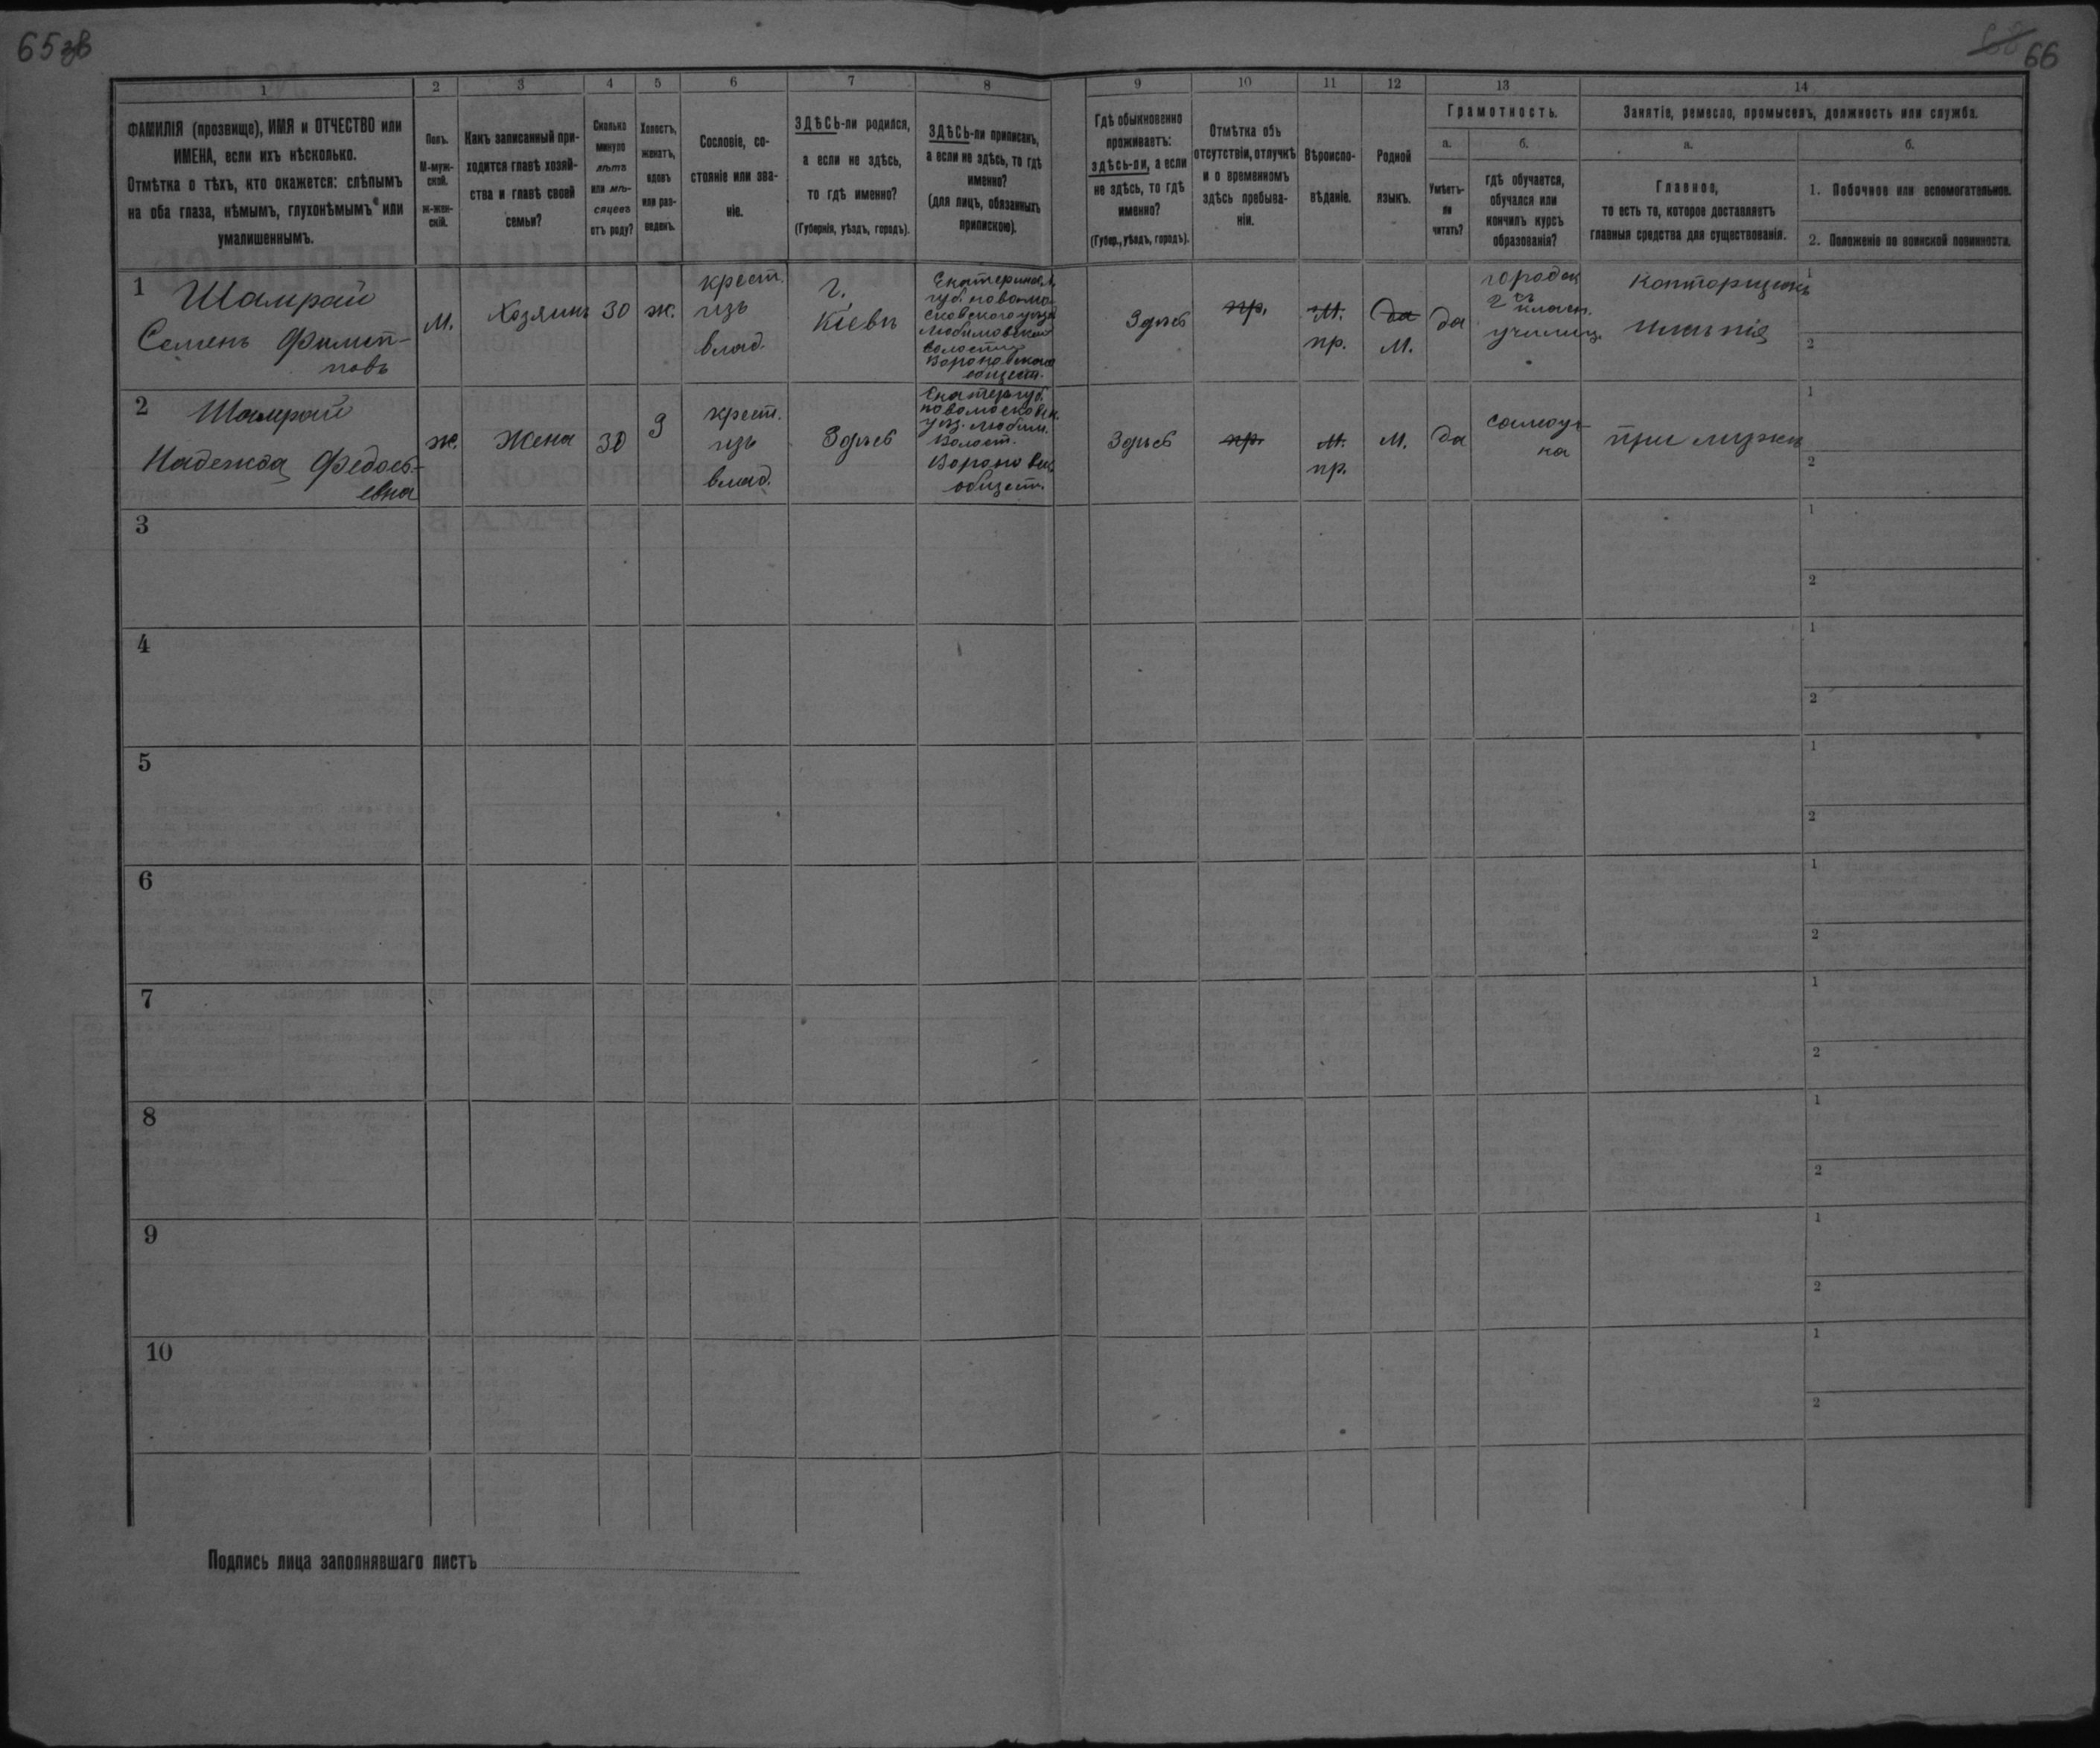 65зв
68 66
1 2 3 4 5 6 7 8 9 10 11 12 13 14
ФАМИЛІЯ (прозвище), ИМЯ и ОТЧЕСТВО или
ИМЕНА, если ихъ нѣсколько.
Отмѣтка о тѣхъ, кто окажется: слѣпымъ
на оба глаза, нѣмымъ, глухонѣмымъ или
умалишеннымъ.
Полъ.
М-муж-
ской.
Ж-жен-
скій.
Какъ записанный при-
ходится главѣ хозяй-
ства и главѣ своей
семьи?
Сколько
минуло
лѣтъ
или мѣ-
сяцевъ
отъ роду?
Холостъ,
женатъ,
вдовъ
или раз-
веденъ.
Сословіе, со-
стояніе или зва-
ніе.
ЗДѢСЬ-ли родился,
а если не здѣсь,
то гдѣ именно?
(Губернія, уѣздъ, городъ).
ЗДѢСЬ-ли приписанъ,
а если не здѣсь, то гдѣ
именно?
(для лицъ, обязанныхъ
припискою).
Гдѣ обыкновенно
проживаетъ:
здѣсь-ли, а если
не здѣсь, то гдѣ
именно?
(Губер., уѣздъ, городъ).
Отмѣтка объ
отсутствіи, отлучкѣ
и о временномъ
здѣсь пребыва-
ніи.
Вѣроиспо-
вѣданіе.
Родной
языкъ.
Грамотность.
а.
Умѣетъ-
ли
читать?
б.
гдѣ обучается,
обучался или
кончилъ курсъ
образованія?
Занятіе, ремесло, промыселъ, должность или служба.
а.
Главное,
то есть то, которое доставляетъ
главныя средства для существованія.
б.
1. Побочное или вспомогательное.
2. Положеніе по воинской повинности.
1
Шамрай
Семенъ Филип-
повъ
М.
Хозяинъ
30
ж.
крест.
изъ
влад.
г.
Кіевъ
Екатеринос.
губ. новомо-
сковского уѣзда
Любимовской
волости
Вороновского
общест.
Здѣсь
пр.
М.
пр.
да
М.
да
городск.
2 хъ класн.
училищ.
Конторщикъ
имѣнія
1
2
2
Шамрай
Надежда Федосѣ-
евна
ж.
Жена
30
З
крест.
изъ
влад.
Здѣсь
Екатер. губ.
новомосковск.
уѣз. Любим.
Волост.
Вороновск.
общест.
Здѣсь
пр.
М.
пр.
М.
да
самоуч-
ка
при мужѣ
1
2
3
1
2
4
1
2
5
1
2
6
1
2
7
1
2
8
1
2
9
1
2
10
1
2
Подпись лица заполнявшаго листъ